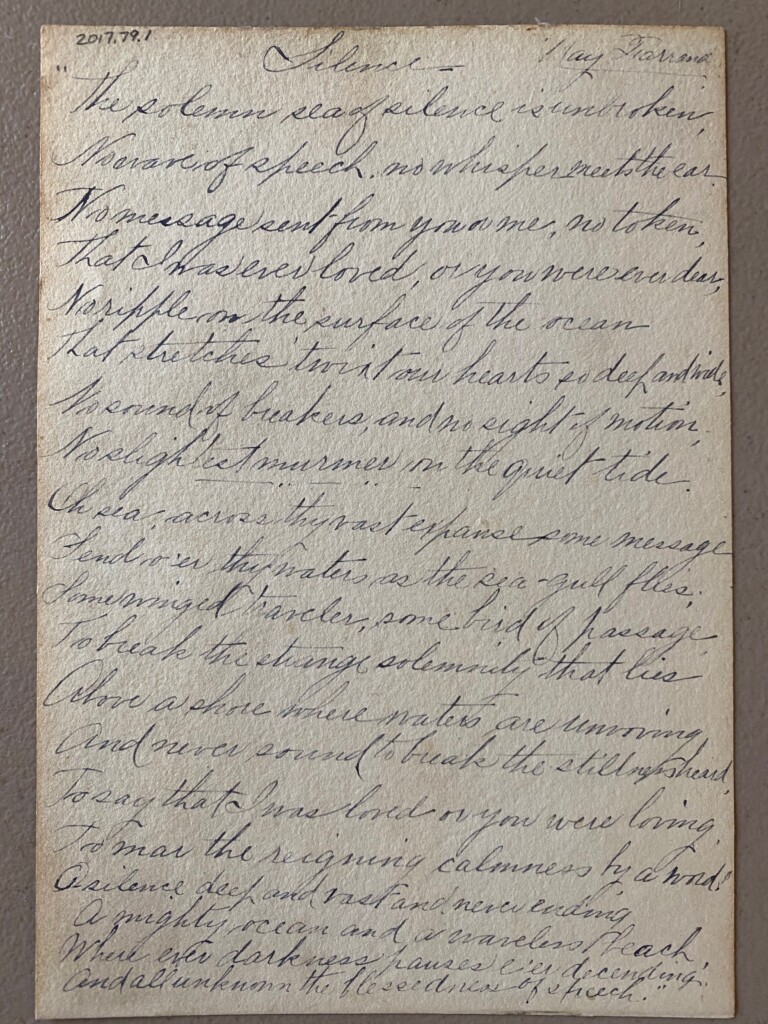 2017.79.1
Silence — May Farrand
"
The solemn sea of silence is unbroken,
No wave of speech, no whisper meets the ear
No message sent from you or me, no token,
That I was ever loved, or you were ever dear,
No ripple on the surface of the ocean
That stretches 'twixt our hearts so deep and wide,
No sound of breakers, and no sight of motion,
No slightest murmer on the quiet tide.
Oh sea, across thy vast expanse some message
Send o'er thy waters as the sea-gull flies;
Some winged traveler, some bird of passage,
To break the strange solemnity that lies
Above a shore where waters are unmoving
And never sound to break the stillness heard,
To say that I was loved or you were loving,
To mar the reigning calmness by a word!
A silence deep and vast and never ending
A mighty ocean and a waveless beach,
Where ever darkness pauses e'er decending.
And all unknown the blessedness of speech."